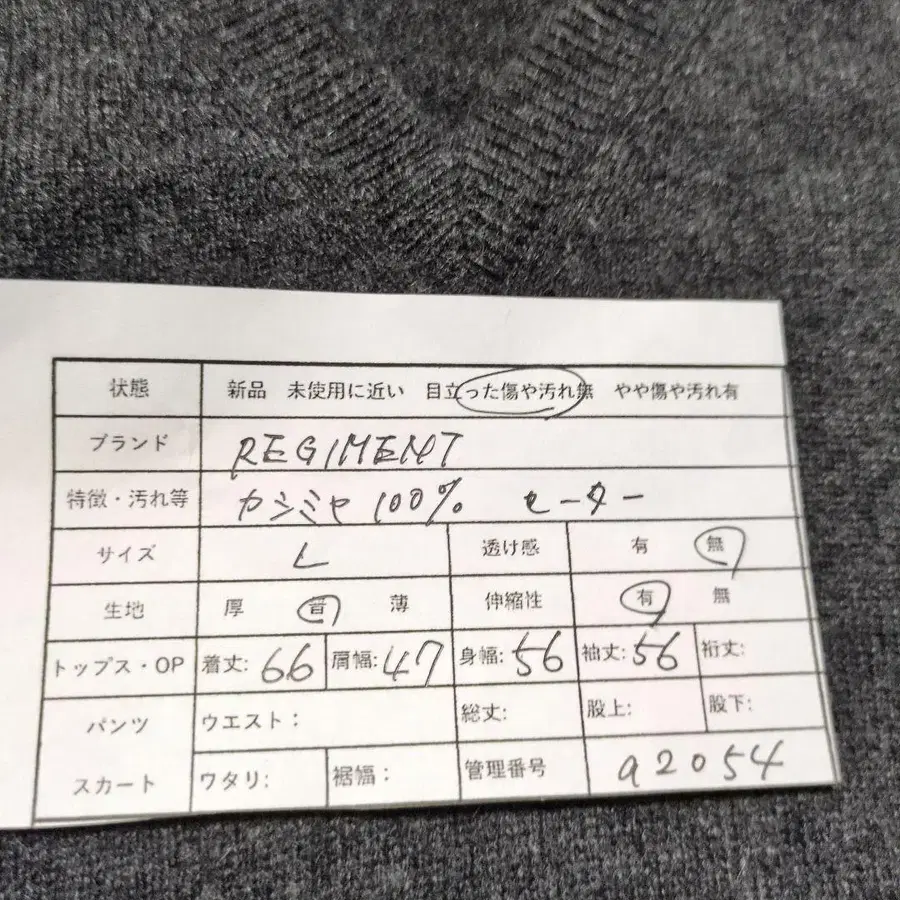 状態 新品 未使用に近い 目立った傷や汚れ無 やや傷や汚れ有
ブランド REGIMENT
特徴・汚れ等 カシミヤ 100% セーター
サイズ L 透け感 有 無
生地 厚 普 薄 伸縮性 有 無
トップス・OP 着丈: 66 肩幅: 47 身幅: 56 袖丈: 56 裄丈:
パンツ ウエスト: 総丈: 股上: 股下:
スカート ワタリ: 裾幅: 管理番号 a2054